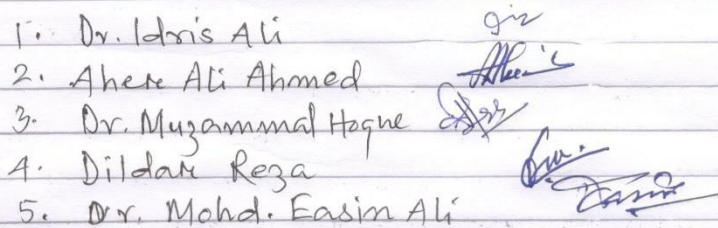 1. Dr. Idris Ali
2. Ahere Ali Ahmed
3. Dr. Muzammal Hoque
4. Dildar Reza
5. Dr. Mohd. Easin Ali